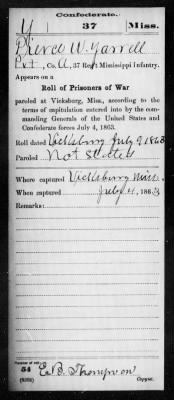 Confederate.
Y 37 Miss.
Pierce W. Yarrell
Pvt, Co. A, 37 Reg't Mississippi Infantry.
Appears on a
Roll of Prisoners of War
paroled at Vicksburg, Miss., according to the
terms of capitulation entered into by the com-
manding Generals of the United States and
Confederate forces July 4, 1863.
Roll dated Vicksburg July 9 1863
Paroled Not Stated
Where captured Vicksburg Miss.
When captured July 4, 1863
Remarks:
Number of roll:
54
E. B. Thompson
Copyist.